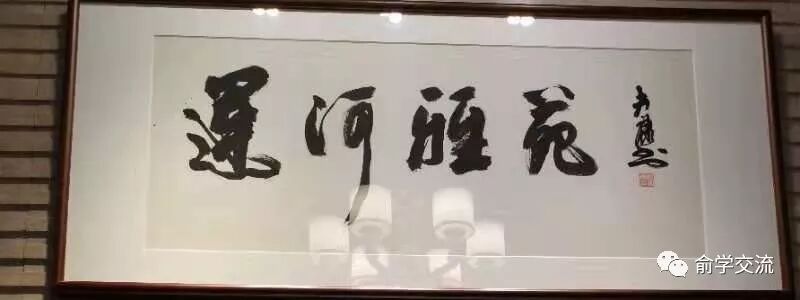 運河雅苑
俞学交流